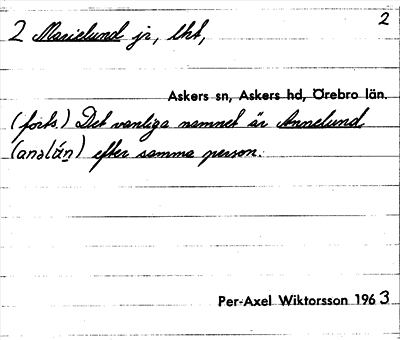 2
2 Marielund jr, lht,
Askers sn, Askers hd, Örebro län.
(forts.) Det vanliga namnet är Annelund
(anəlún) efter samma person.
Per-Axel Wiktorsson 1963